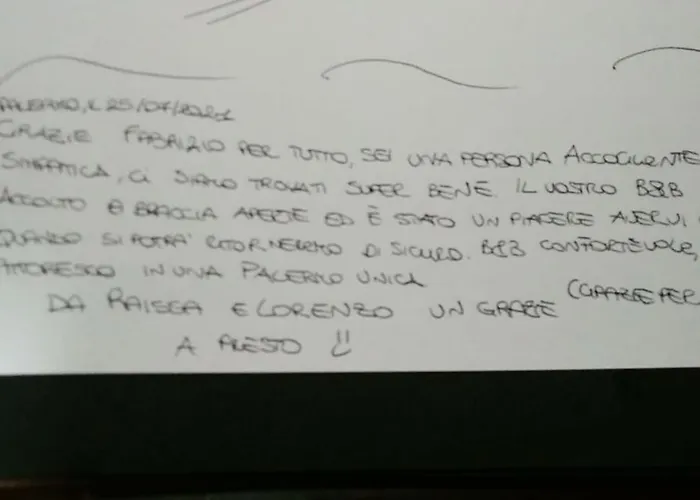 PALERMO, IL 25/07/2021
GRAZIE FABRIZIO PER TUTTO, SEI UNA PERSONA ACCOGLIENTE
SIMPATICA, CI SIAMO TROVATI SUPER BENE. IL VOSTRO B&B
ACCOLTO A BRACCIA APERTE ED È STATO UN PIACERE AVERVI
QUANDO SI POTRA' RITORNEREMO DI SICURO. B&B CONFORTEVOLE,
PITTORESCO IN UNA PALERMO UNICA
(GRAZIE PER
DA RAISSA E LORENZO UN GRAZIE
A PRESTO